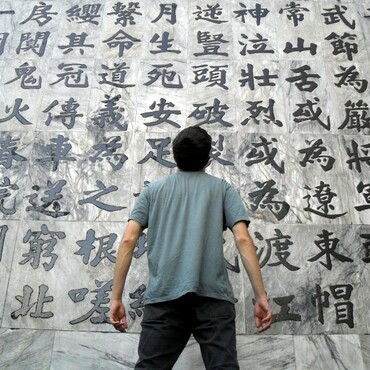 武節為嚴將軍
常山舌或為遼東帽
神泣壯烈或為渡江
逆豎頭破
月生死安足
繫命道義為之根嗟
纓其冠傳車送窮北
房闃鬼火春院